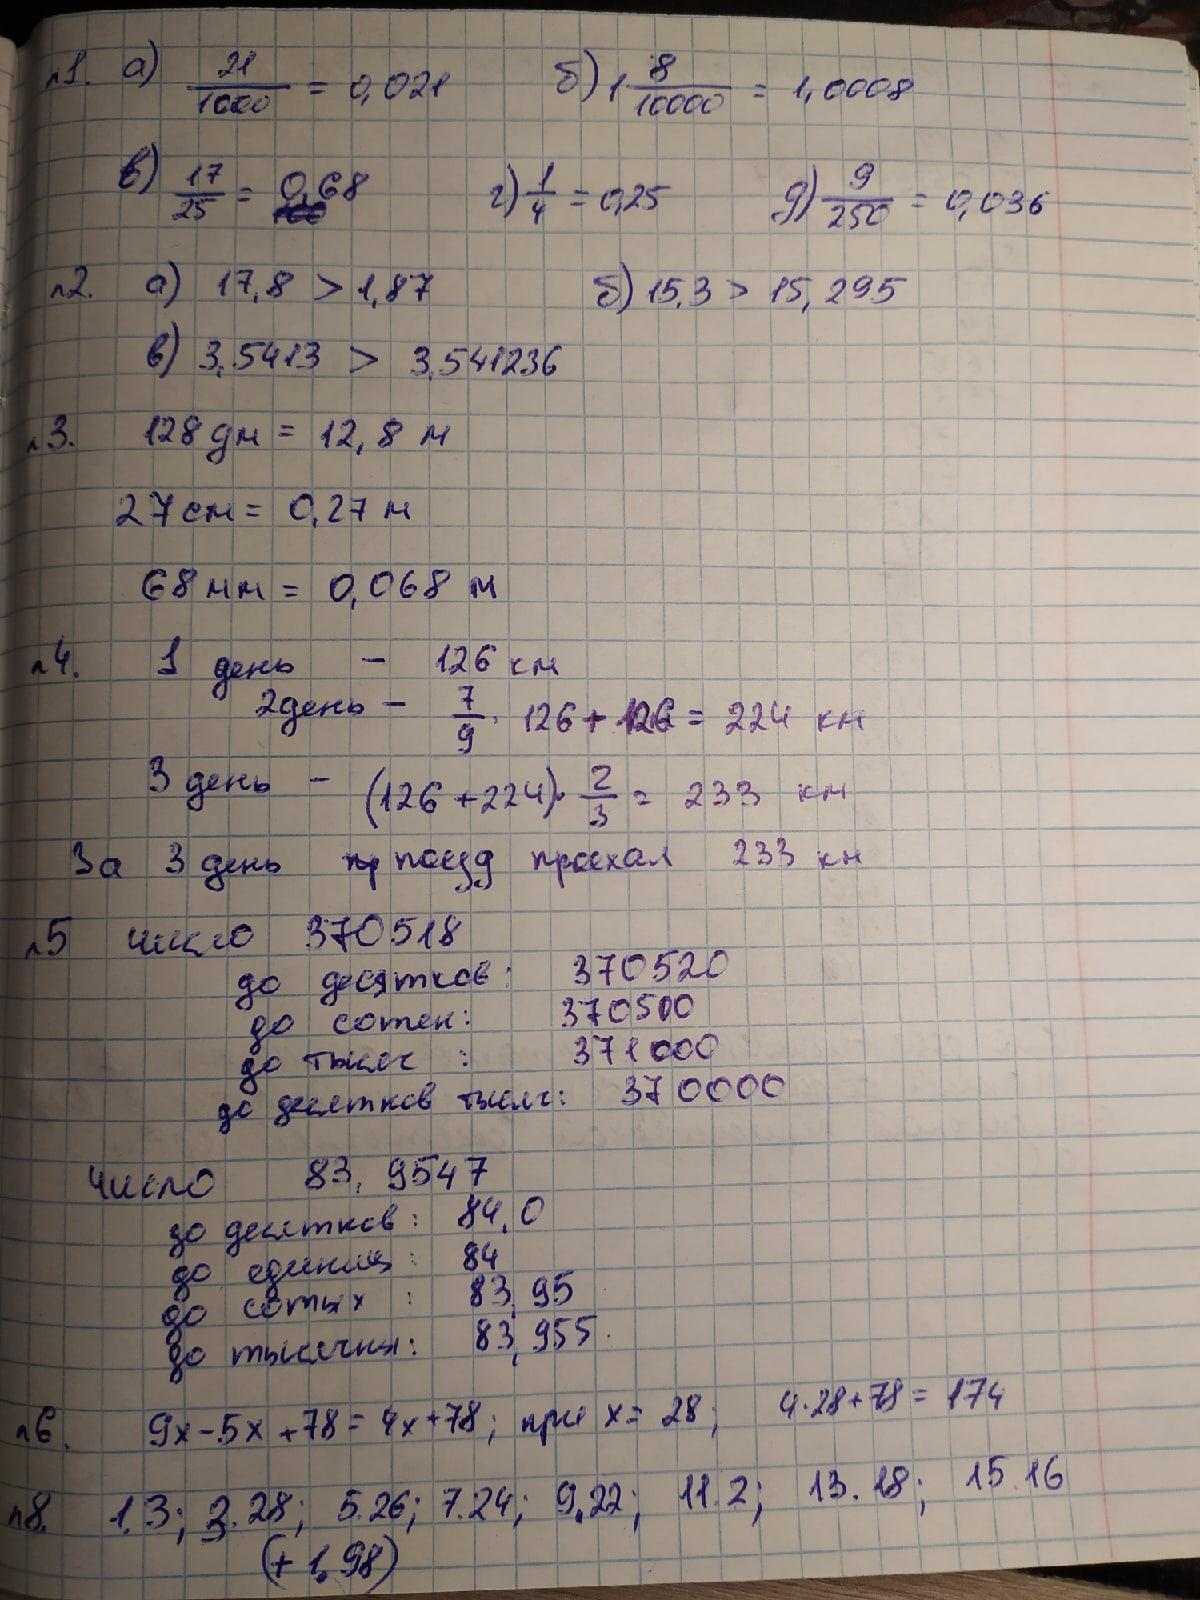 п1. а) 21/1000 = 0,021 б) 1 8/10000 = 1,0008
в) 17/25 = 0,68 г) 1/4 = 0,25 д) 9/250 = 0,036
п2. а) 17,8 > 1,87 б) 15,3 > 15,295
в) 3,5413 > 3,541236
п3. 128 дм = 12,8 м
27 см = 0,27 м
68 мм = 0,068 м
п4. 1 день - 126 км
2 день - 7/9 · 126 + 126 = 224 км
3 день - (126 + 224) · 2/3 = 233 км
За 3 день поезд проехал 233 км
п5 число 370518
до десятков: 370520
до сотен: 370500
до тысяч : 371000
до десятков тысяч: 370000
число 83,9547
до десятков: 84,0
до единиц: 84
до сотых : 83,95
до тысячных: 83,955
п6. 9x-5x+78=4x+78; при x=28; 4·28+78=174
п8. 1.3; 3.28; 5.26; 7.24; 9.22; 11.2; 13.18; 15.16
(+1,98)